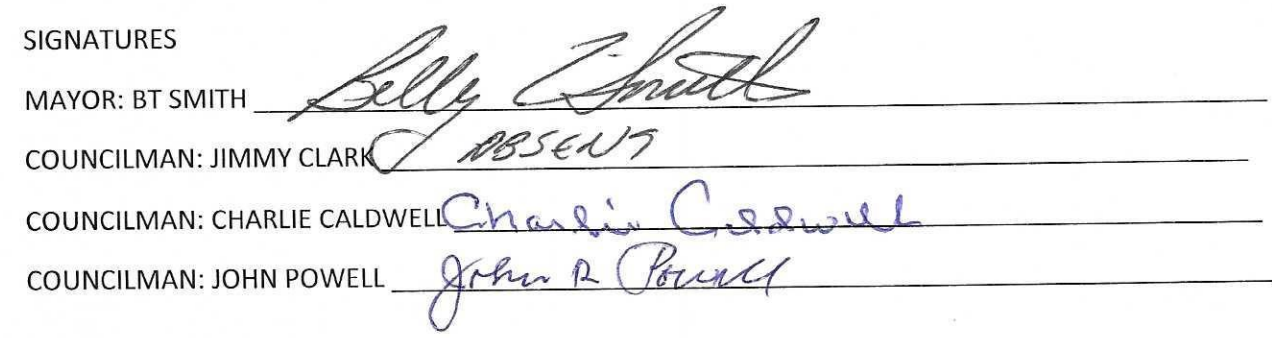 SIGNATURES
MAYOR: BT SMITH Billy T Smith
COUNCILMAN: JIMMY CLARK ABSENT
COUNCILMAN: CHARLIE CALDWELL Charlie Caldwell
COUNCILMAN: JOHN POWELL John R Powell